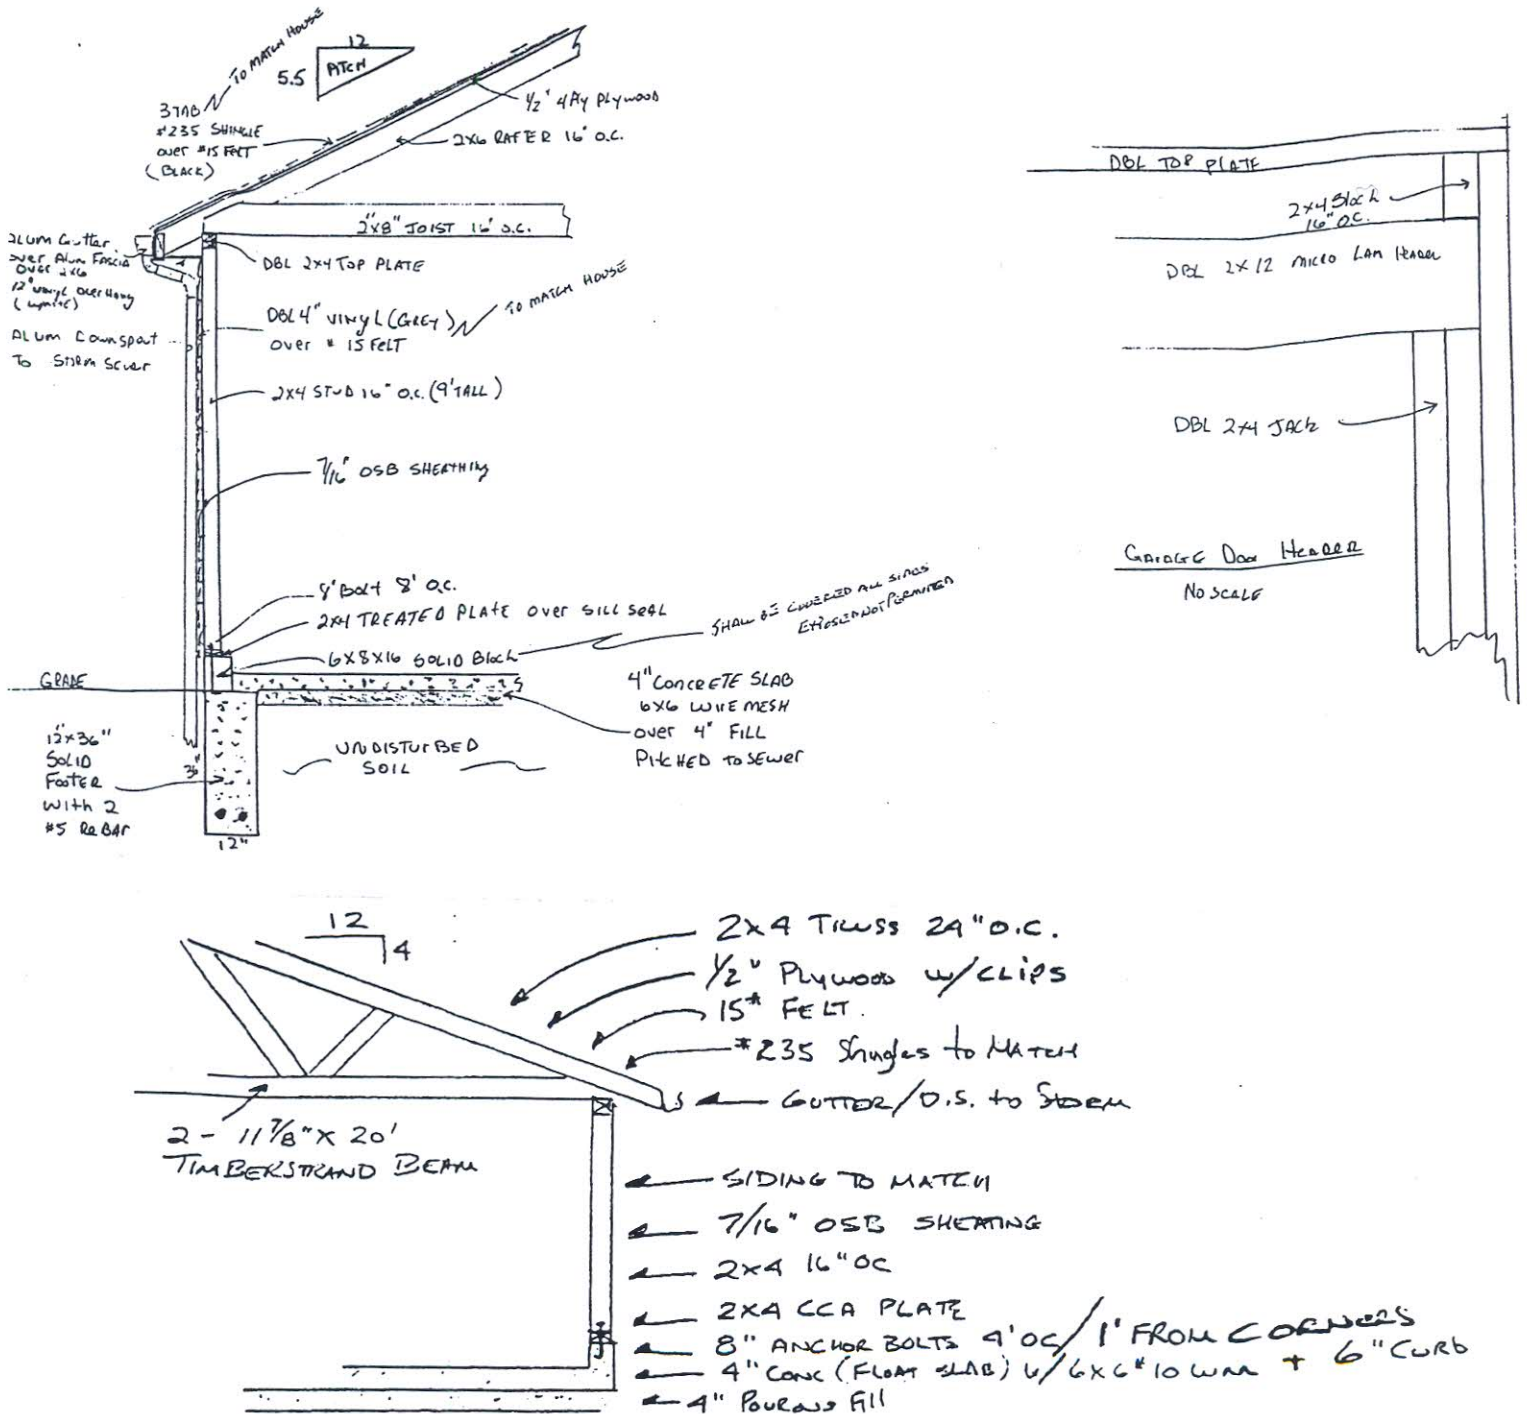 12
5.5
PITCH
TO MATCH HOUSE
3TAB
#235 SHINGLE
over #15 FELT
(BLACK)
1/2" 4 Ply Plywood
2x6 RAFTER 16" O.C.
2"x8" JOIST 16" O.C.
ALUM Gutter
over Alum FASCIA
over 2x6
12" vinyl overhang
(white)
DBL 2x4 TOP PLATE
DBL 4" VINYL (GREY)
over #15 FELT
TO MATCH HOUSE
ALUM Downspout
To Storm Sewer
2x4 STUD 16" O.C. (9' TALL)
7/16" OSB SHEATHING
8" Bolt 8' O.C.
2x4 TREATED PLATE over SILL SEAL
6x8x16 SOLID Block
SHALL BE COVERED ALL SIDES
EXPOSED NOT PERMITTED
GRADE
4" CONCRETE SLAB
6x6 WIRE MESH
over 4" FILL
PITCHED TO SEWER
12"x36"
SOLID
FOOTER
WITH 2
#5 ReBAR
36"
12"
UNDISTURBED
SOIL
DBL TOP PLATE
2x4 Block
16" O.C.
DBL 2x12 MICRO LAM HEADER
DBL 2x4 JACK
GARAGE Door HEADER
NO SCALE
12
4
2x4 TRUSS 24" O.C.
1/2" Plywood w/CLIPS
15# FELT
#235 Shingles to MATCH
GUTTER/D.S. to STORM
2- 11 7/8" x 20'
TIMBERSTRAND BEAM
SIDING TO MATCH
7/16" OSB SHEATING
2x4 16" OC
2x4 CCA PLATE
8" ANCHOR BOLTS 4' OC/1' FROM CORNERS
4" CONC (FLOAT SLAB) w/6x6 #10 WWM + 6" CURB
4" POUROUS Fill